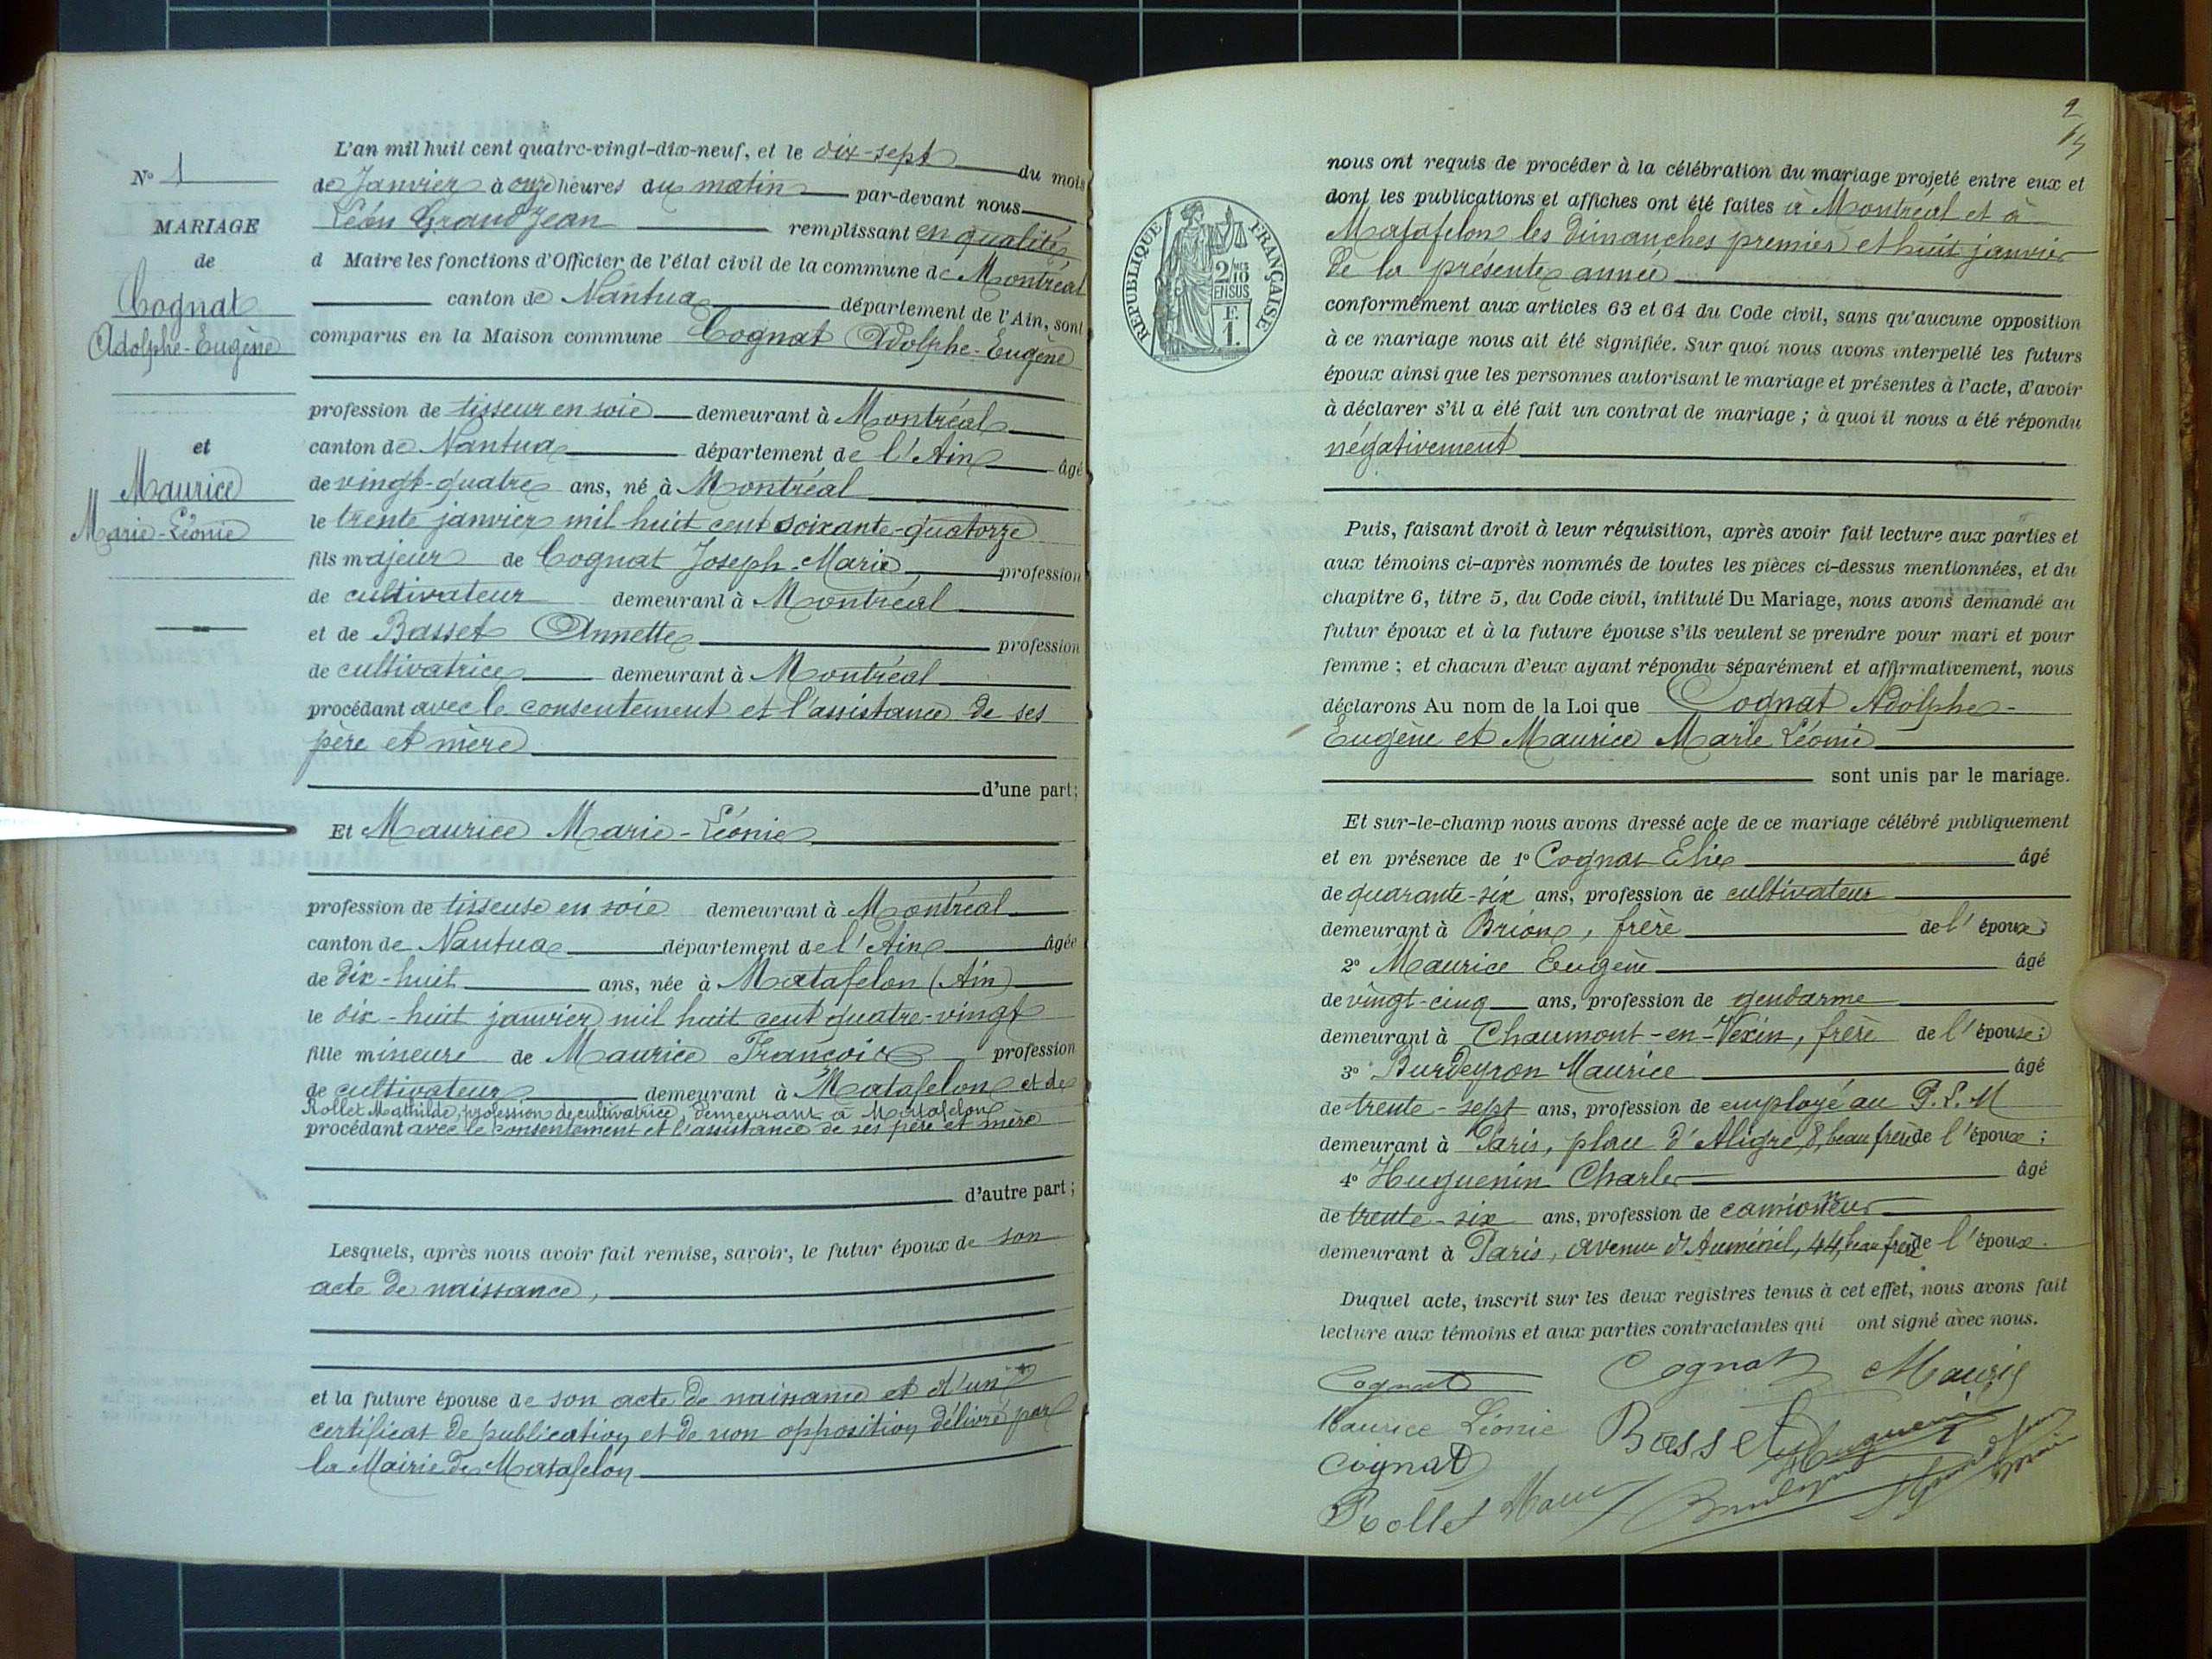 L'an mil huit cent quatre-vingt-dix-neuf, et le dix-sept du mois
de Janvier à onze heures du matin par-devant nous
Léon GrandJean remplissant en qualité
d Maire les fonctions d'Officier de l'état civil de la commune de Montréal
canton de Nantua département de l'Ain, sont
comparus en la Maison commune Cognat Adolphe-Eugène
profession de tisseur en soie demeurant à Montréal
canton de Nantua département de l'Ain âgé
de vingt-quatre ans, né à Montréal
le trente janvier mil huit cent soixante-quatorze
fils majeur de Cognat Joseph-Marie profession
de cultivateur demeurant à Montréal
et de Basset Annette profession
de cultivatrice demeurant à Montréal
procédant avec le consentement et l'assistance de ses
père et mère
d'une part;
Et Maurice Marie-Léonie
profession de tisseuse en soie demeurant à Montréal
canton de Nantua département de l'Ain âgée
de dix-huit ans, née à Matafelon (Ain)
le dix-huit janvier mil huit cent quatre-vingt
fille mineure de Maurice François profession
de cultivateur demeurant à Matafelon et de
Rollet Mathilde, profession de cultivatrice, demeurant à Matafelon
procédant avec le consentement et l'assistance de ses père et mère
d'autre part;
Lesquels, après nous avoir fait remise, savoir, le futur époux de son
acte de naissance,
et la future épouse de son acte de naissance et d'un
certificat de publication et de non opposition délivré par
la Mairie de Matafelon
No 1
MARIAGE
de
Cognat
Adolphe-Eugène
et
Maurice
Marie-Léonie
2
RÉPUBLIQUE FRANÇAISE
2/10 MES
EN SUS
F.
1.
nous ont requis de procéder à la célébration du mariage projeté entre eux et
dont les publications et affiches ont été faites à Montréal et à
Matafelon les dimanches premier et huit janvier
de la présente année
conformément aux articles 63 et 64 du Code civil, sans qu'aucune opposition
à ce mariage nous ait été signifiée. Sur quoi nous avons interpellé les futurs
époux ainsi que les personnes autorisant le mariage et présentes à l'acte, d'avoir
à déclarer s'il a été fait un contrat de mariage ; à quoi il nous a été répondu
négativement
Puis, faisant droit à leur réquisition, après avoir fait lecture aux parties et
aux témoins ci-après nommés de toutes les pièces ci-dessus mentionnées, et du
chapitre 6, titre 5, du Code civil, intitulé Du Mariage, nous avons demandé au
futur époux et à la future épouse s'ils veulent se prendre pour mari et pour
femme ; et chacun d'eux ayant répondu séparément et affirmativement, nous
déclarons Au nom de la Loi que Cognat Adolphe-
Eugène et Maurice Marie Léonie
sont unis par le mariage.
Et sur-le-champ nous avons dressé acte de ce mariage célébré publiquement
et en présence de 1o Cognat Elie âgé
de quarante-six ans, profession de cultivateur
demeurant à Brion, frère de l'époux;
2o Maurice Eugène âgé
de vingt-cinq ans, profession de gendarme
demeurant à Chaumont-en-Vexin, frère de l'épouse;
3o Burdeyron Maurice âgé
de trente-sept ans, profession de employé au P.L.M
demeurant à Paris, place d'Aligre, 8, beau frère de l'époux;
4o Huguenin Charles âgé
de trente-six ans, profession de camionneur
demeurant à Paris, avenue d'Auménil, 44, beau frère de l'époux.
Duquel acte, inscrit sur les deux registres tenus à cet effet, nous avons fait
lecture aux témoins et aux parties contractantes qui ont signé avec nous.
Cognat Cognat Mauris
Maurice Léonie Basset Huguenin
Cognat
Rollet